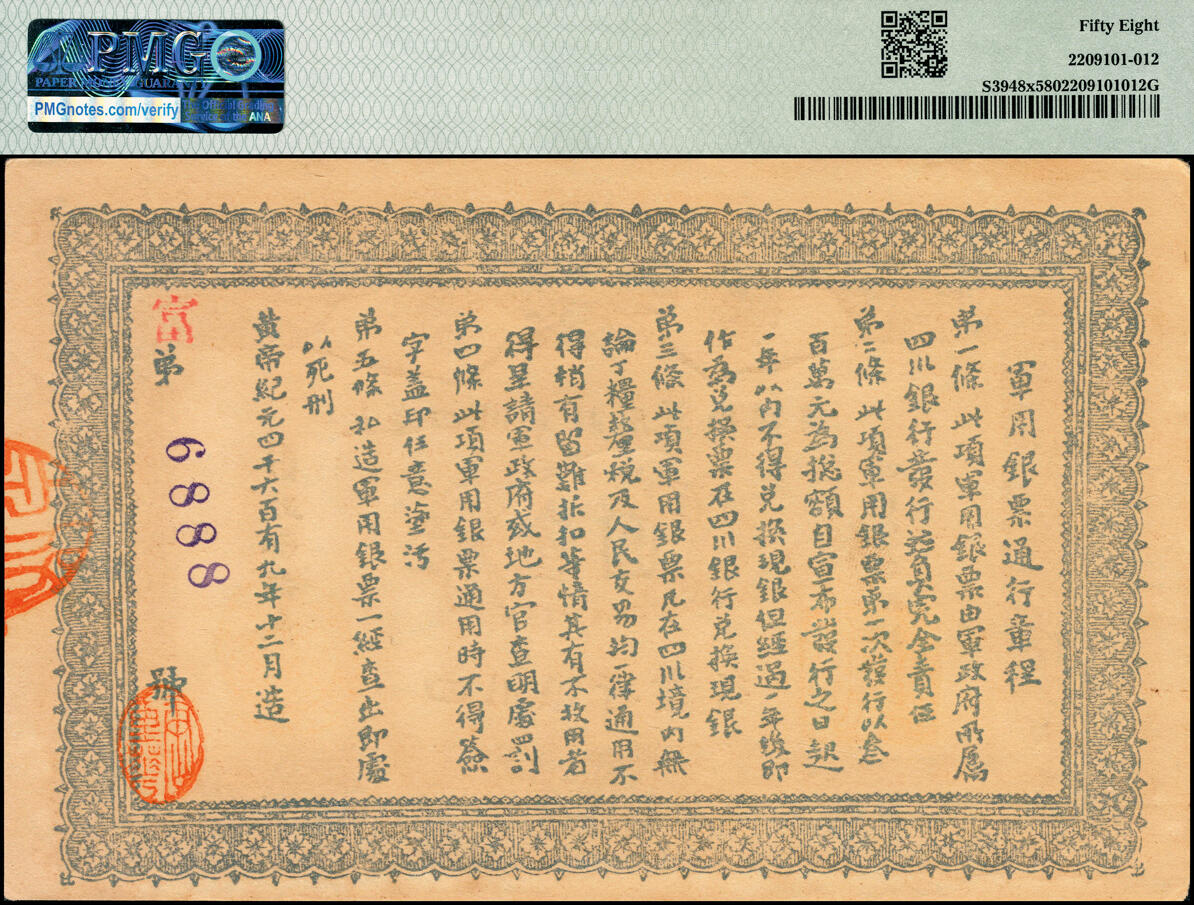 PMG
PAPER MONEY GUARANTY
PMGnotes.com/verify
The Official Grading
Service of the ANA
Fifty Eight
2209101-012
S3948x5802209101012G
軍用銀票通行章程
第一條 此項軍用銀票由軍政府所屬
四川銀行發行完全責任
第二條 此項軍用銀票第一次發行以叁
百萬元為總額自宣布發行之日起
一年以內不得兌換現銀但經過一年後即
作為兌換票在四川銀行兌換現銀
第三條 此項軍用銀票凡在四川境內無
論丁糧釐稅及人民交易均一律通用不
得稍有留難折扣等情其有不收用者
得呈請軍政府或地方官查明處罰
第四條 此項軍用銀票通用時不得簽
字蓋印任意塗污
第五條 私造軍用銀票一經查出即處
以死刑
黃帝紀元四千六百有九年十二月造
富
第 6888 號